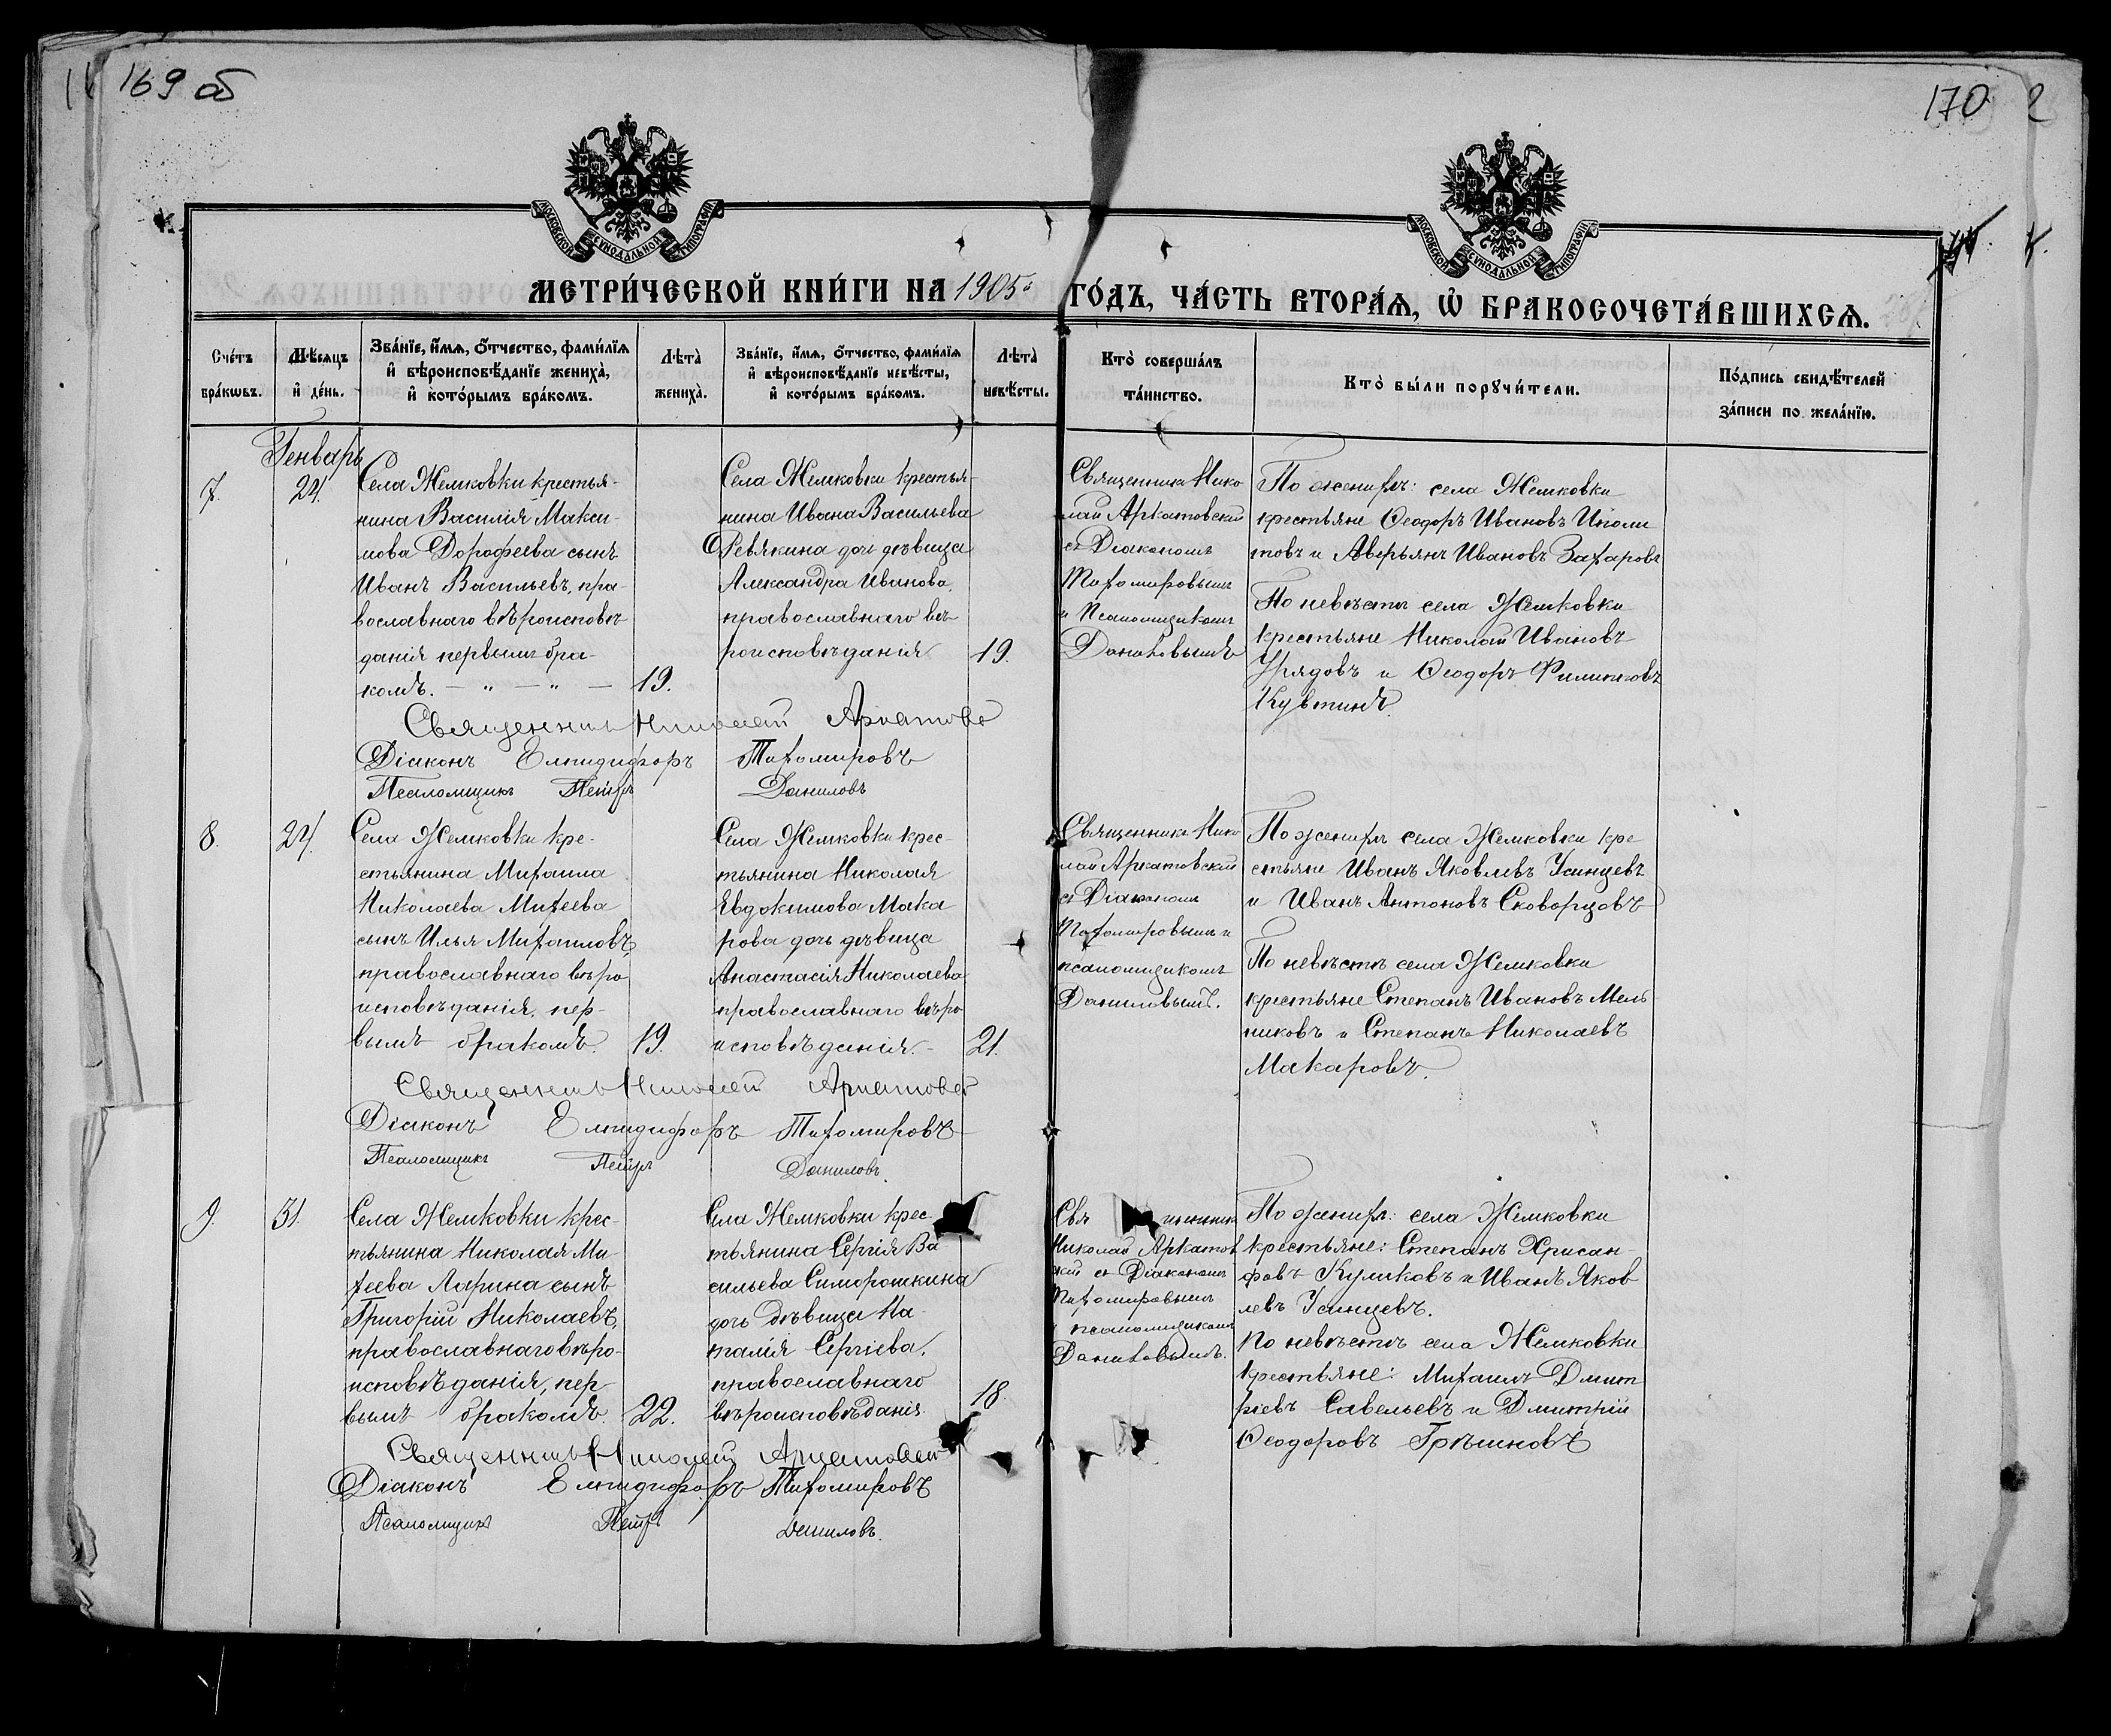 169 об
170
2
МОСКОВСКОЙ СѴНОДАЛЬНОЙ ТИПОГРАФІИ
МОСКОВСКОЙ СѴНОДАЛЬНОЙ ТИПОГРАФІИ
МЕТРИ́ЧЕСКОЙ КНИ́ГИ НА 1905 ГО́ДЪ, ЧА́СТЬ ВТОРА́Ѧ, Ѽ БРАКОСОЧЕТА́ВШИХСѦ.
Сче́тъ бра́кѡвъ.
Мѣ́сѧцъ и҆ де́нь.
Зва́нїе, и҆́мѧ, ѻ҆́тчество, фами́лїѧ и҆ вѣроисповѣ́данїе жениха̀, и҆ кото́рымъ бра́комъ.
Лѣта̀ жениха̀.
Зва́нїе, и҆́мѧ, ѻ҆́тчество, фами́лїѧ и҆ вѣроисповѣ́данїе невѣ́сты, и҆ кото́рымъ бра́комъ.
Лѣта̀ невѣ́сты.
Кто̀ соверша́лъ та́инство.
Кто̀ бы́ли порꙋчи́тели.
По́дпись свидѣ́телей за́писи по жела́нїю.
Генварь
7.
24.
Села Жемковки крестья-
нина Василія Макси-
мова Дорофеева сынъ
Иванъ Васильевъ, пра-
вославнаго вѣроисповѣ-
данія первымъ бра-
комъ. — „ — „ —
19.
Села Жемковки крестья-
нина Ивана Васильева
Ревякина дочь дѣвица
Александра Иванова,
православнаго вѣ-
роисповѣданія
19.
Священникъ Нико-
лай Аркатовский
съ Діакономъ
Тихомировымъ
и Псаломщикомъ
Даниловымъ
По женихѣ: села Жемковки
крестьяне Ѳеодоръ Ивановъ Иполи
товъ и Аверьянъ Ивановъ Захаровъ
По невѣстѣ села Жемковки
крестьяне Николай Ивановъ
Урядовъ и Ѳеодоръ Филиповъ
Кувтинъ.
Священникъ Николай Аркатовс
Діаконъ Елпидифоръ Тихомировъ
Псаломщикъ Петръ Даниловъ
8.
24.
Села Жемковки кре-
стьянина Михаила
Николаева Михеева
сынъ Илья Михаиловъ,
православнаго вѣро
исповѣданія, пер-
вымъ бракомъ.
19.
Села Жемковки крес-
тьянина Николая
Евдокимова Мака
рова дочь дѣвица
Анастасія Николаева
православнаго вѣро
исповѣданія. -
21.
Священникъ Нико
лай Аркатовский
съ Діакономъ
Тихомировымъ и
псаломщикомъ
Даниловымъ.
По женихѣ села Жемковки кре
стьяне Иванъ Яковлевъ Усинцевъ
и Иванъ Антоновъ Сковорцовъ
По невѣстѣ села Жемковки
крестьяне Степанъ Ивановъ Мель
никовъ и Степанъ Николаевъ
Макаровъ.
Священникъ Николай Аркатовс
Діаконъ Елпидифоръ Тихомировъ
Псаломщикъ Петръ Даниловъ.
9.
31.
Села Жемковки крес-
тьянина Николая Ми-
хеева Ларина сынъ
Григорій Николаевъ,
православнаго вѣро-
исповѣданія, пер-
вымъ бракомъ.
22.
Села Жемковки крес-
тьянина Сергія Ва
сильева Симорошкина
дочь дѣвица На-
талія Сергіева,
православнаго
вѣроисповѣданія.
18.
Свя нникъ
Николай Аркатов
кій съ Діакономъ
Тихомировымъ
псаломщикомъ
Даниловымъ.
По женихѣ: села Жемковки
крестьяне: Степанъ Хрисан-
фовъ Куликовъ и Иванъ Яков
левъ Усинцевъ.
По невѣстѣ села Жемковки
крестьяне: Михаилъ Дмит
ріевъ Савельевъ и Дмитрій
Ѳеодоровъ Грѣшновъ
Священникъ Николай Аркатовс
Діаконъ Елпидифоръ Тихомировъ
Псаломщикъ Петръ Даниловъ.